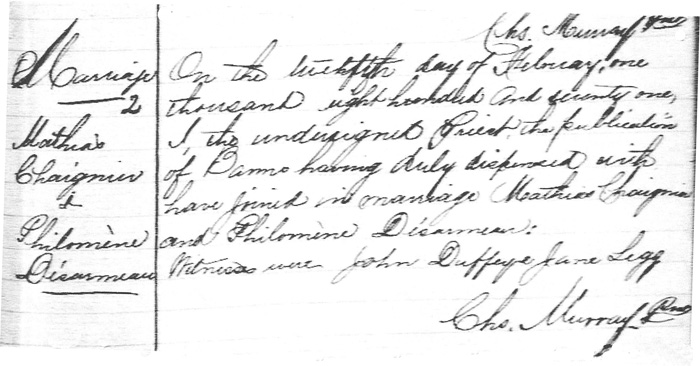 Chs. Murray Pmr
Marriage
2
Mathias
Chaignier
&
Philomène
Désarmeau
On the twelfth day of February, one
thousand eight hundred and seventy one,
I, the undersigned Priest the publication
of Banns having duly dispensed with
have joined in marriage Mathias Chaignier
and Philomène Désarmeau:
Witnesses were John Duffeye Jane Legg
Chs. Murray